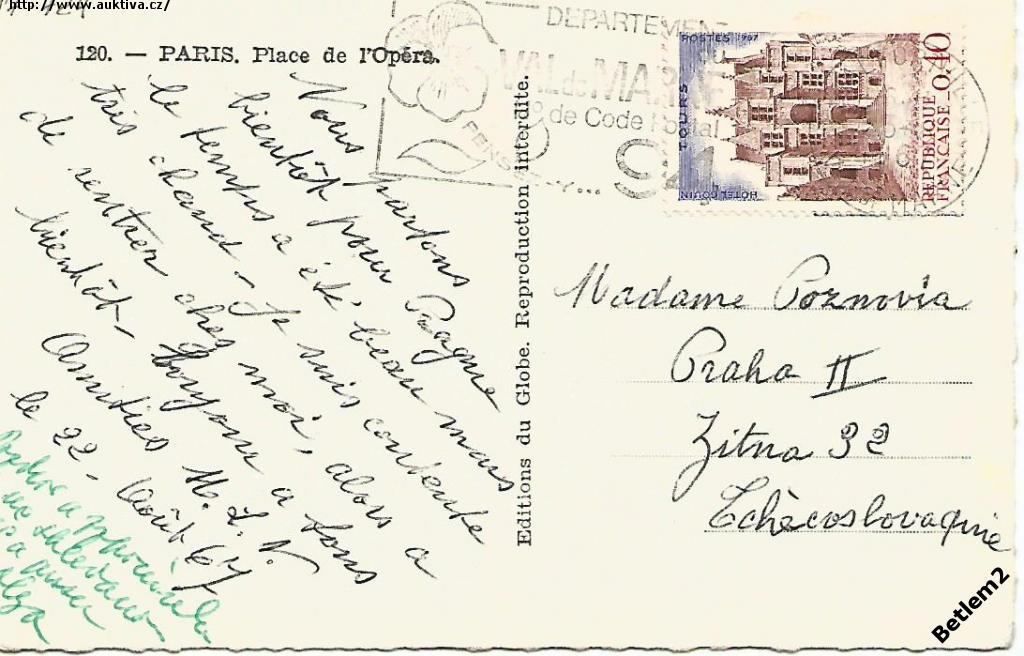 http://www.auktiva.cz/
120. — PARIS. Place de l'Opéra.
Nous partons
bientôt pour Prague
le temps a été beau mais
très chaud - Je suis contente
de rentrer chez moi, alors a
bientôt - Bonjour a tous
Amitiés M. L. N.
le 22 - Août 67
Editions du Globe. Reproduction interdite.
DEPARTEMENT
DU
VAL de MARNE
N° de Code Postal
94
PENSEZ-Y...
POSTES 1967
TOURS
HOTEL GOUIN
REPUBLIQUE
FRANCAISE
0,40
Madame Poznovia
Praha II
Zitna 32
Tchècoslovaquie
Betlem2